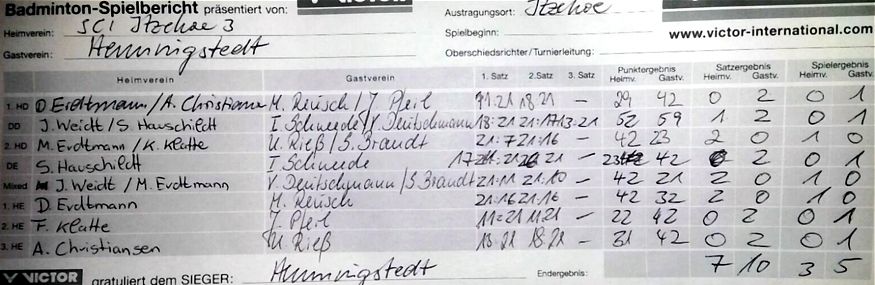 VICTOR
Badminton-Spielbericht präsentiert von:
Austragungsort: Itzehoe
Heimverein: SCI Itzehoe 3
Spielbeginn:
www.victor-international.com
Gastverein: Hennigstedt
Oberschiedsrichter/Turnierleitung:
Heimverein Gastverein 1. Satz 2. Satz 3. Satz Punktergebnis Heimv. Gastv. Satzergebnis Heimv. Gastv. Spielergebnis Heimv. Gastv.
1. HD D Erdtmann/A. Christiansen M. Reusch/J. Pfeil 11:21 18:21 – 29 42 0 2 0 1
DD J. Weidt/S. Hauschildt I. Schneede/V. Deutschmann 18:21 21:17 13:21 52 59 1 2 0 1
2. HD M. Erdtmann/K. Klatte U. Rieß/S. Brandt 21:7 21:16 – 42 23 2 0 1 0
DE S. Hauschildt I. Schneede 21 – 42 2 0 1
Mixed J. Weidt/M. Erdtmann V. Deutschmann/S. Brandt 21:11 21:10 – 42 21 2 0 1 0
1. HE D. Erdtmann M. Reusch 21:16 21:16 – 42 32 2 0 1 0
2. HE F. Klatte J. Pfeil 11:21 11:21 – 22 42 0 2 0 1
3. HE A. Christiansen U. Rieß 13:21 18:21 – 31 42 0 2 0 1
VICTOR gratuliert dem SIEGER: Hennigstedt Endergebnis: 7 10 3 5